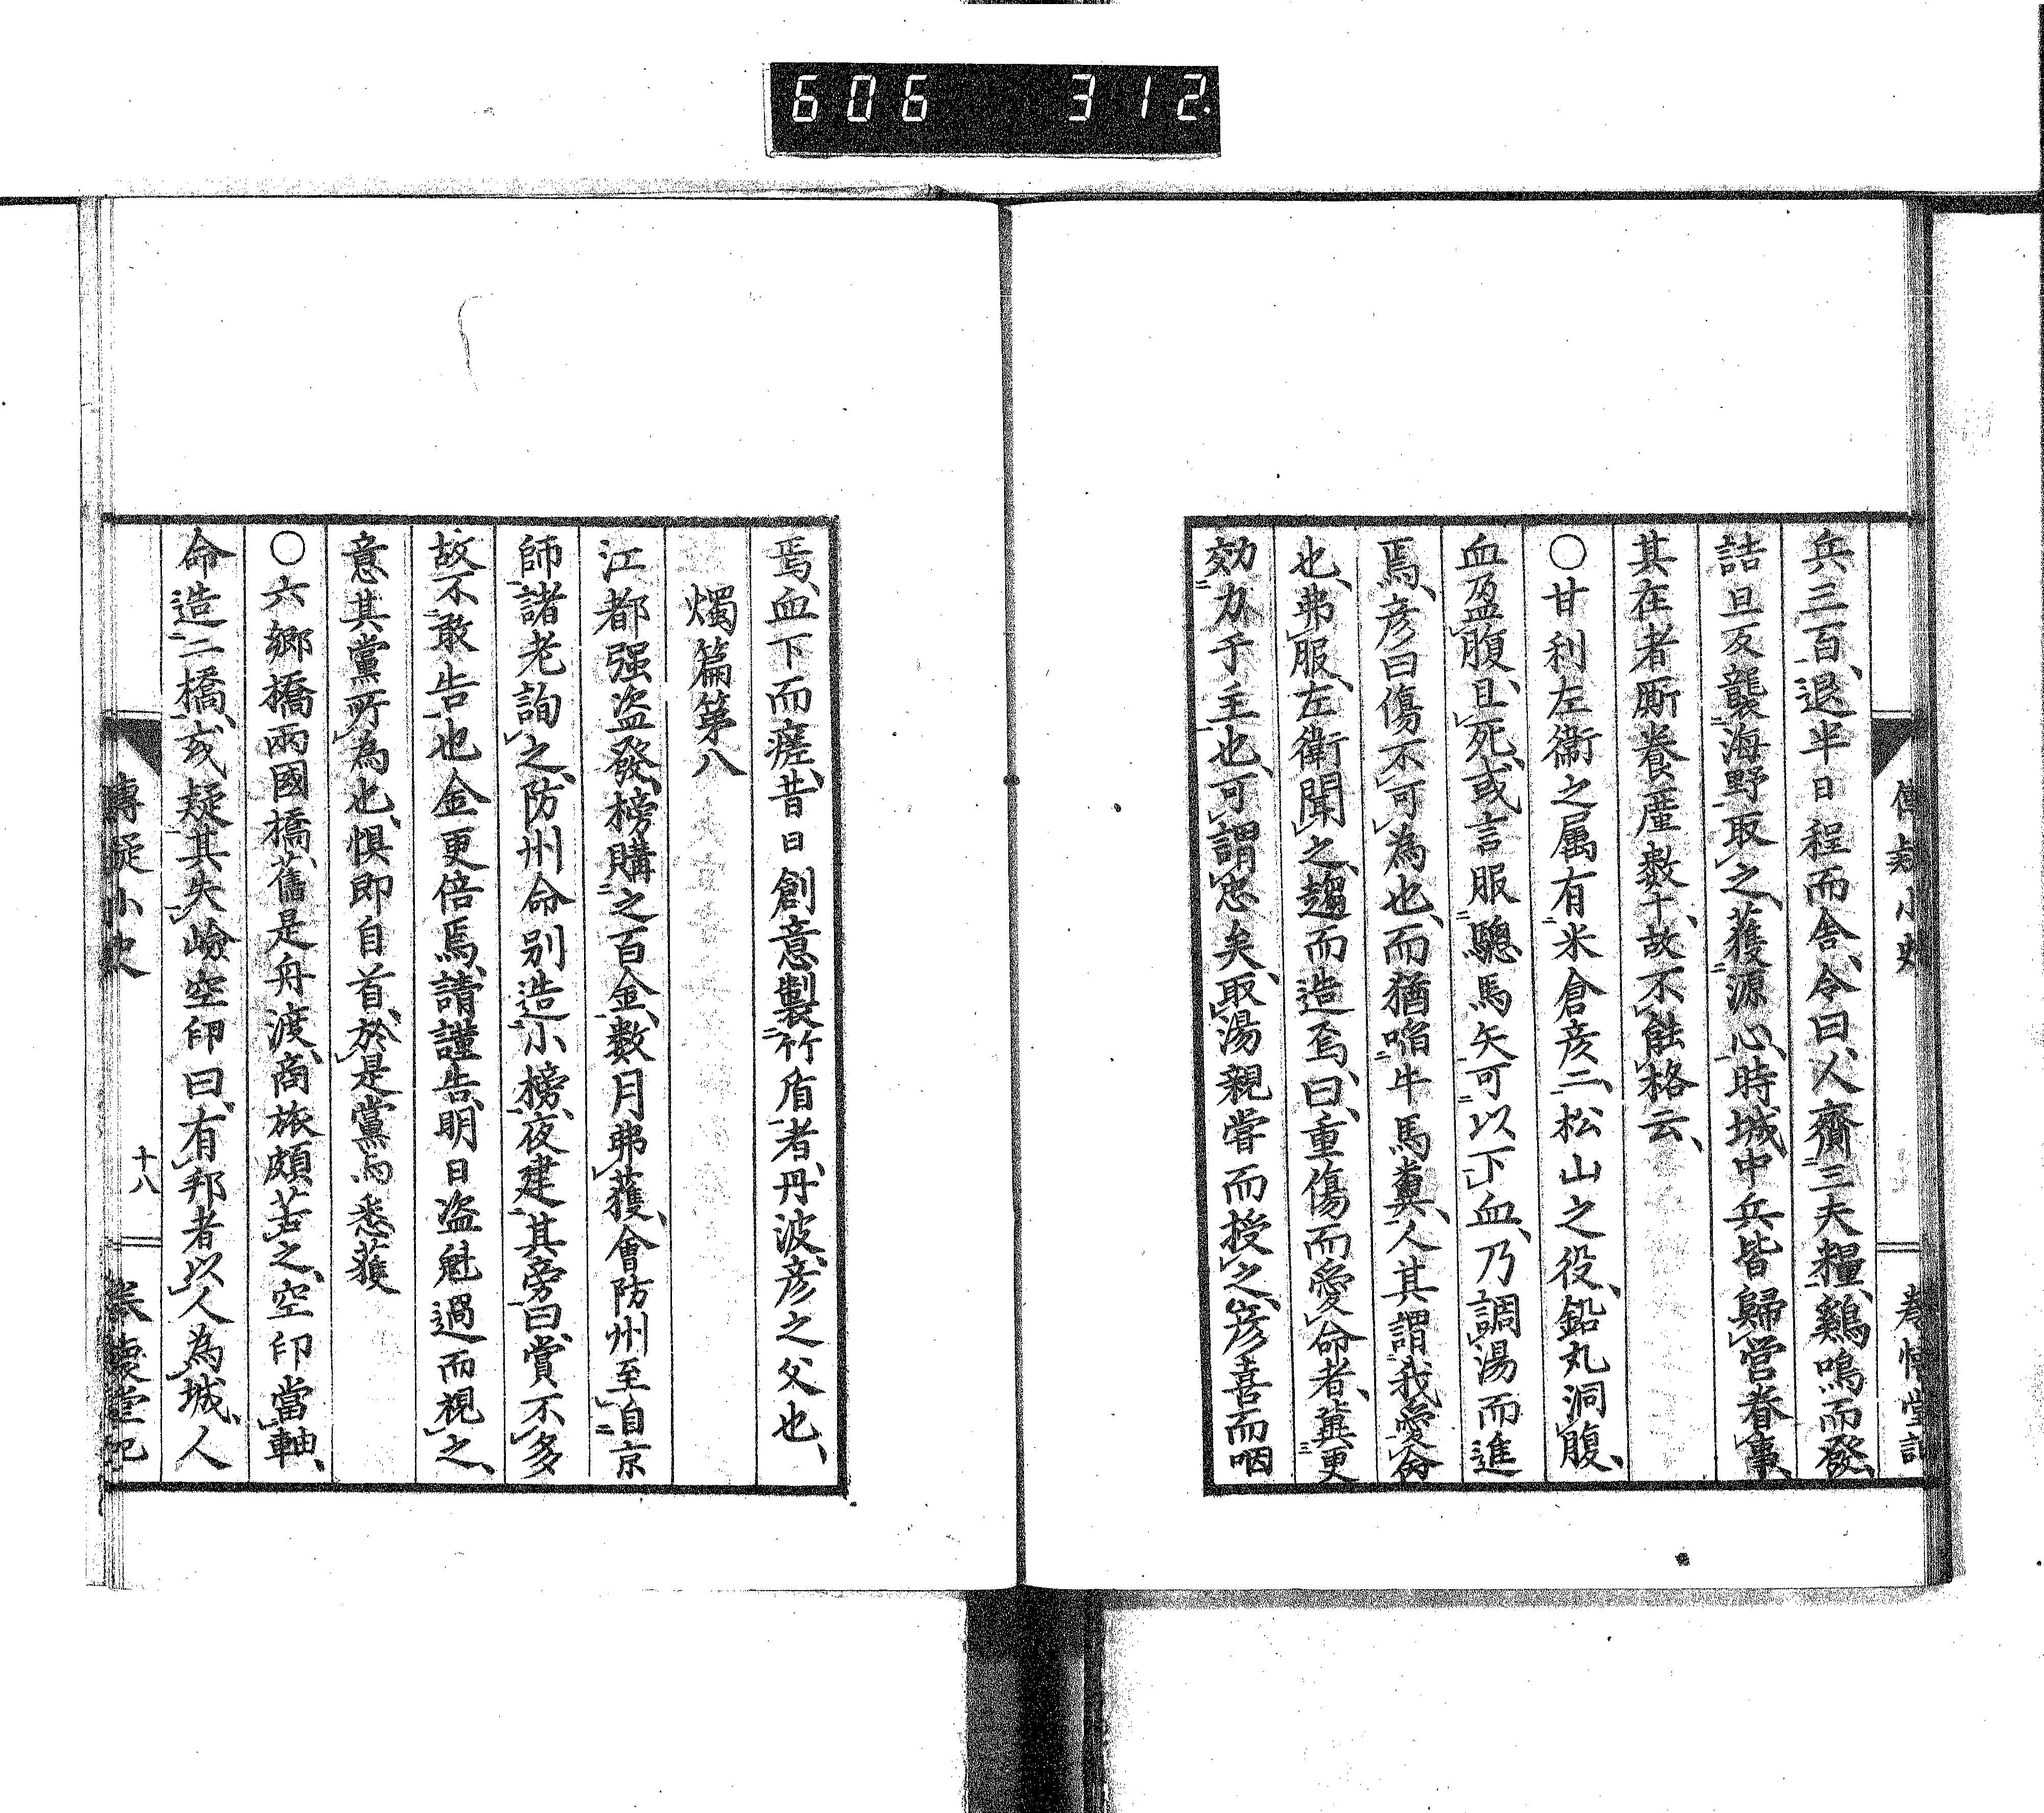 606 312
兵三百、退半日程而舎、令曰、人齎三夫糧、鷄鳴而發、
詰旦反襲海野取之、獲源心、時城中兵皆歸営眷事、
其在者厮養廑數十、故不能格云、
〇甘利左衞之属有米倉彦二、松山之役、鉛丸洞腹、
血盈腹、且死、或言服驄馬矢可以下血、乃調湯而進
焉、彦曰傷不可為也、而猶啗牛馬糞、人其謂我愛命
也、弗服、左衞聞之、趨而造焉、曰、重傷而愛命者、冀更
効力于主也、可謂忠矣、取湯親嘗而授之、彦喜而咽
焉、血下而瘥、昔日創意製竹盾者、丹波、彦之父也、
燭篇第八
江都强盗發、榜購之百金、數月弗獲、會防州至自京
師、諸老詢之、防州命別造小榜、夜建其旁曰、賞不多
故不敢告也金更倍焉、請謹告、明日盗魁過而視之、
意其黨所為也、惧即自首、於是黨与悉獲
〇六郷橋兩國橋、舊是舟渡、商旅頗苦之、空印當軸、
命造二橋、或疑其失嶮空印曰、有邦者以人為城、人
十八